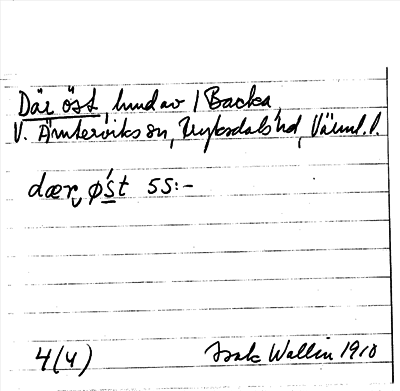 Där öst, hmd av 1 Backa,
V. Ämterviks sn, Fryksdals hd, Värml. l.
dær øst 55:-
4(4) Isak Wallin 1910